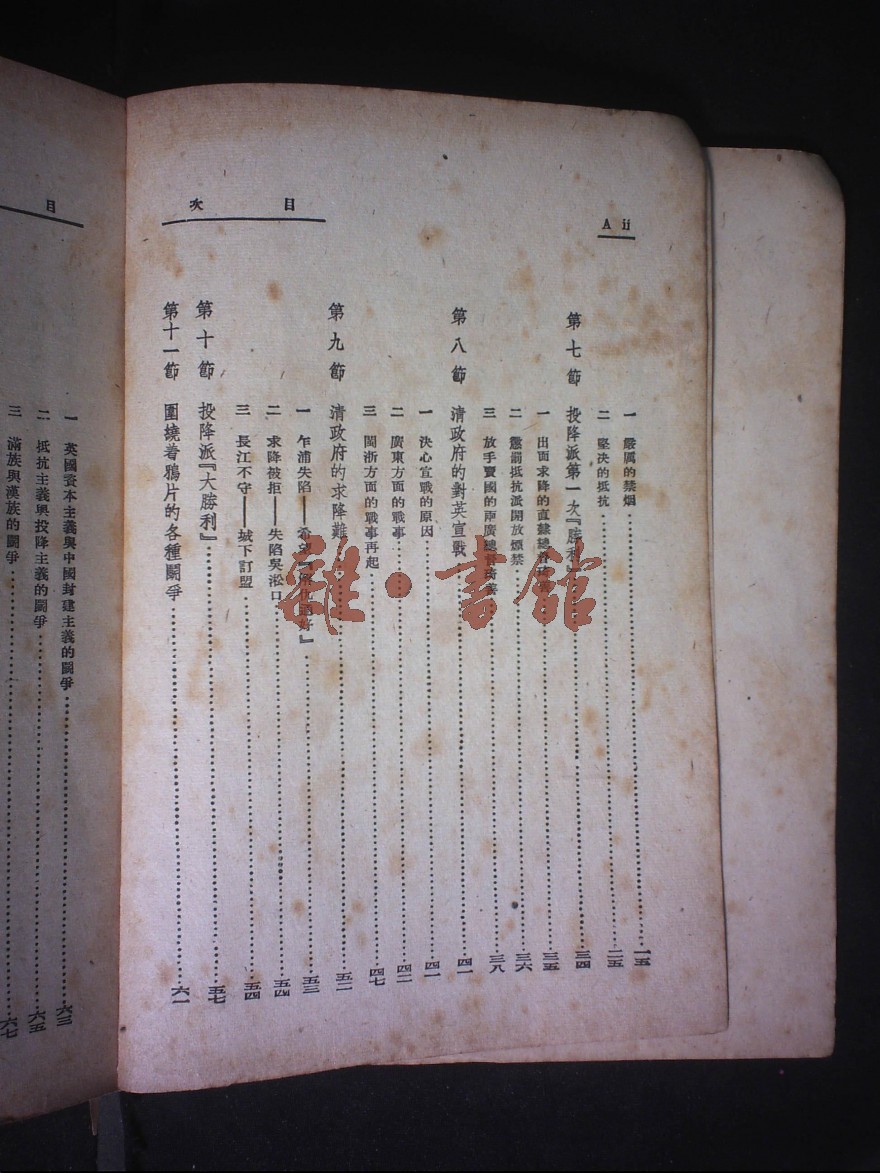 目　次
A ii
一　嚴厲的禁烟……一五
二　堅决的抵抗……二五
第七節　投降派第一次『勝利』……三四
一　出面求降的直隸總督琦善……三五
二　懲罰抵抗派開放煙禁……三六
三　放手賣國的兩廣總督琦善……三八
第八節　清政府的對英宣戰……四一
一　決心宣戰的原因……四一
二　廣東方面的戰事……四二
三　閩浙方面的戰事再起……四七
第九節　清政府的求降難……五二
一　乍浦失陷——希望『好』……五三
二　求降被拒——失陷吳淞口……五四
三　長江不守——城下訂盟……五四
第十節　投降派『大勝利』……五七
第十一節　圍繞着鴉片的各種鬭爭……六一
目
一　英國資本主義與中國封建主義的鬭爭……六三
二　抵抗主義與投降主義的鬭爭……六五
三　滿族與漢族的鬭爭……六七
雜·書館